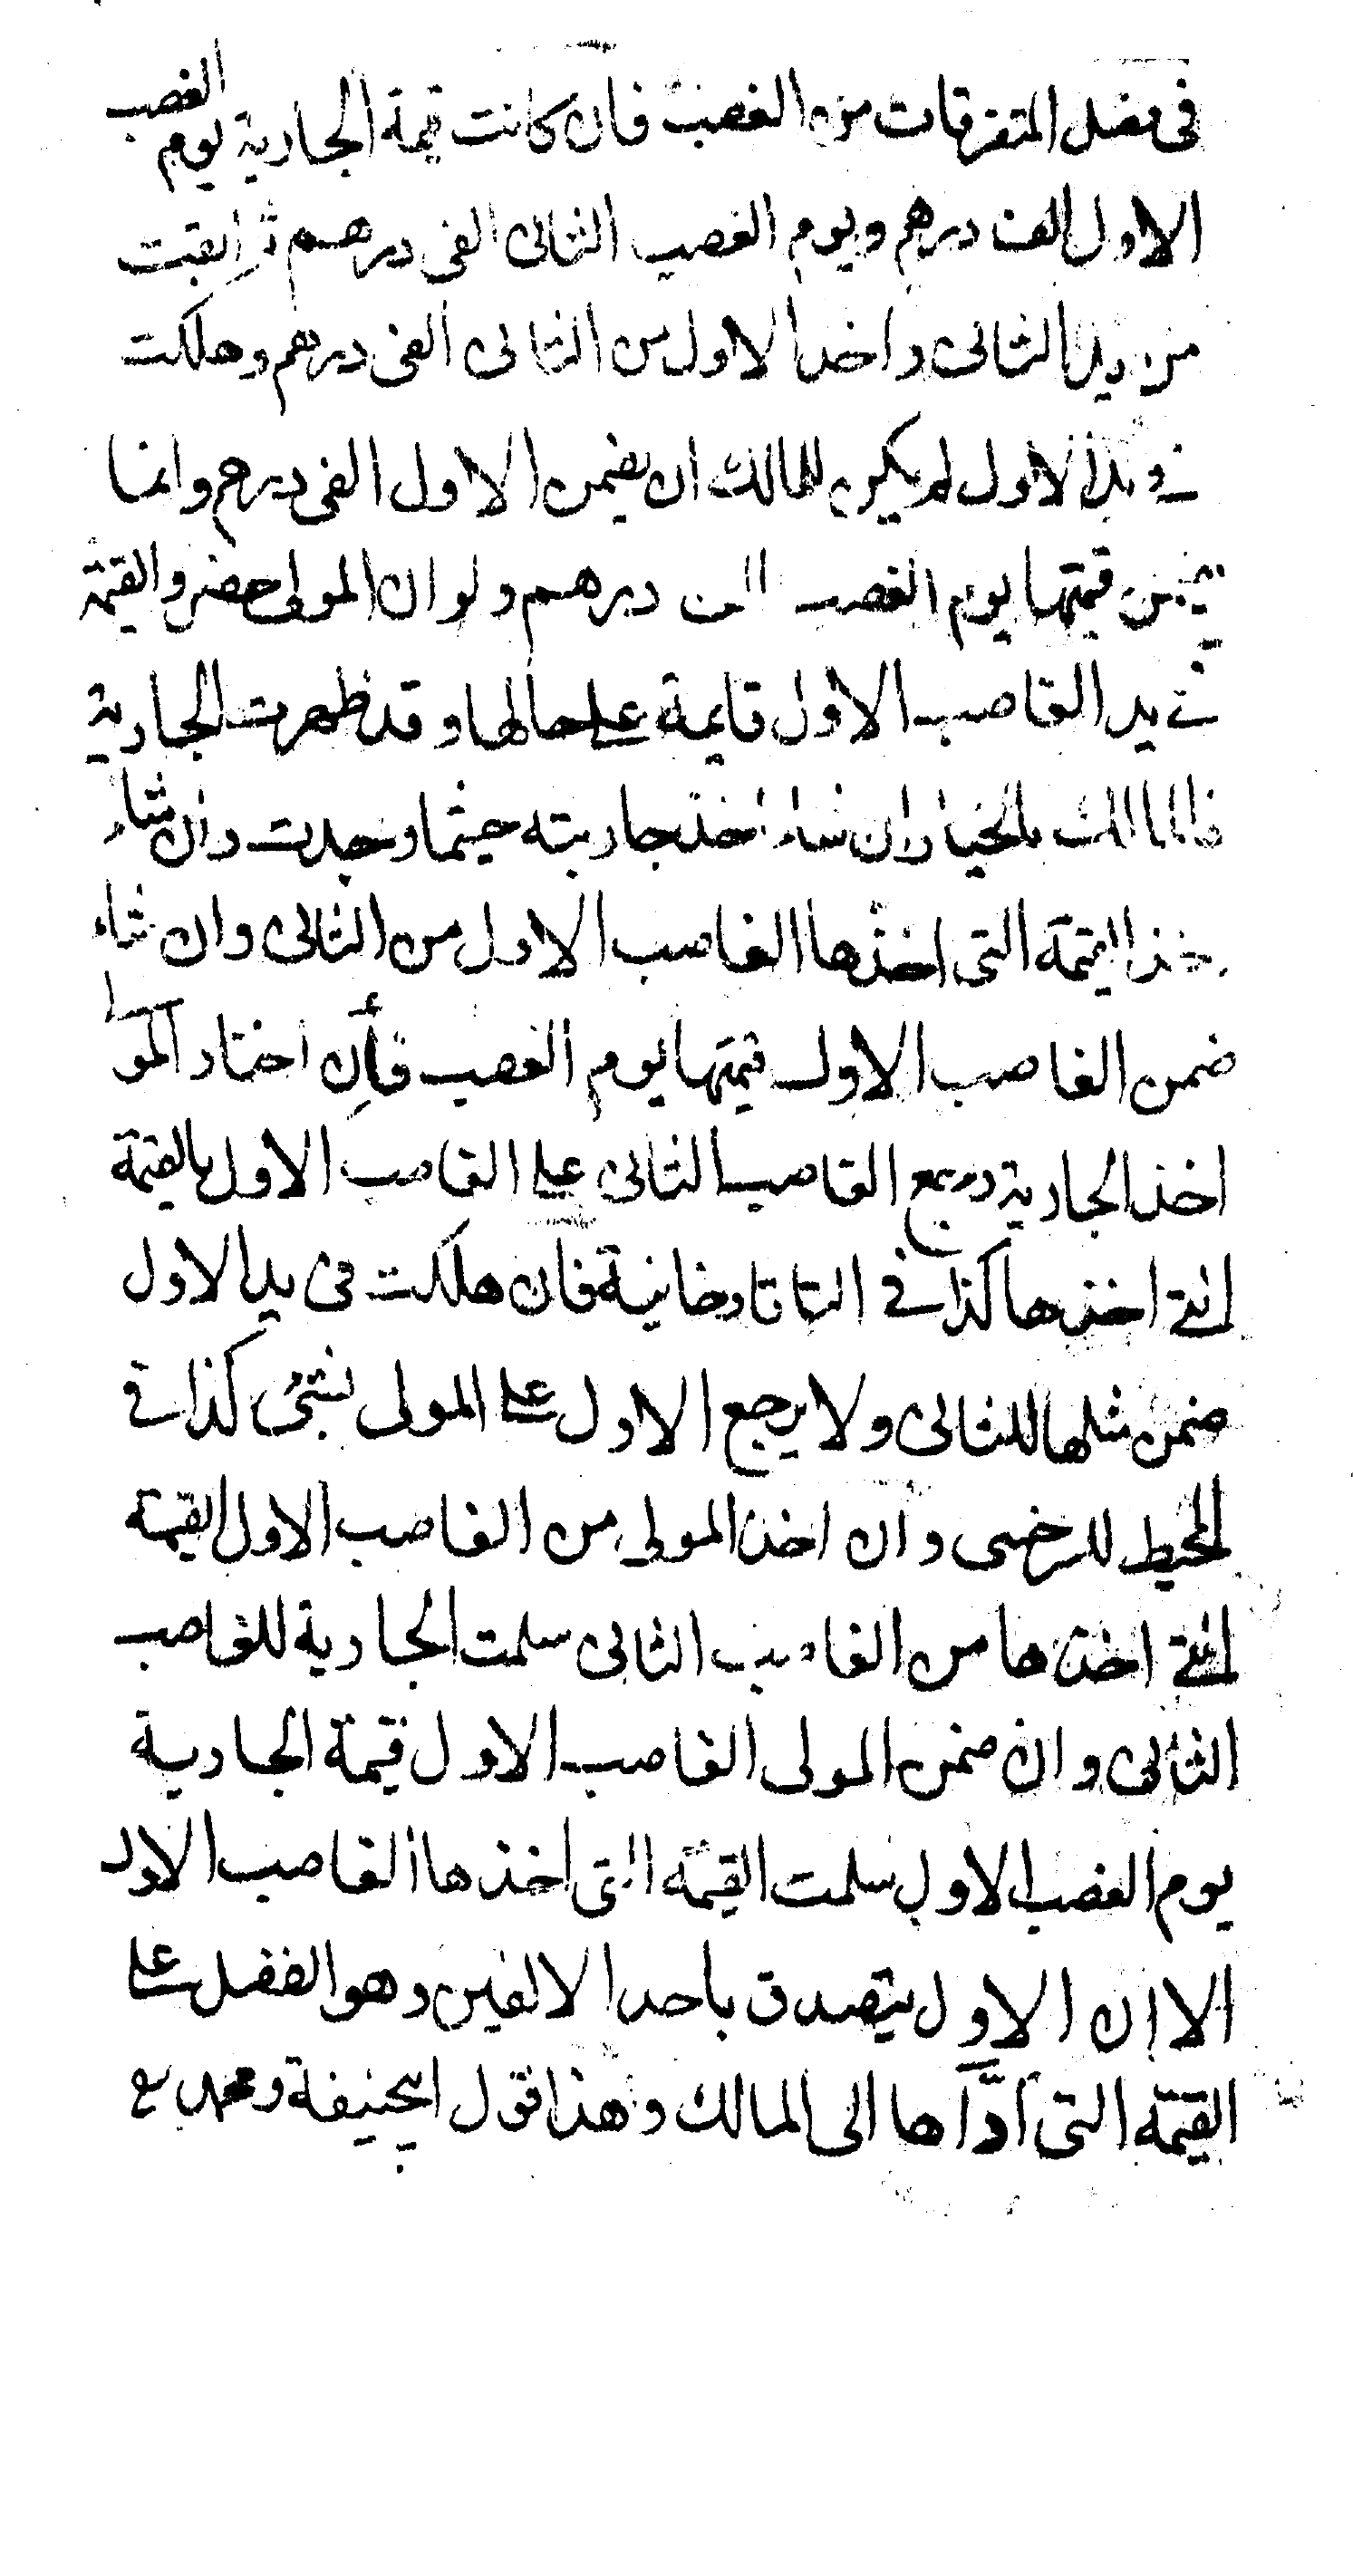 فى فصل المتفرقات من الغصب فان كانت قيمة الجارية يوم الغصب
الاول الف درهم ويوم الغصب الثانى الفى درهم ثم ابقت
من يد الثانى واخذ الاول من الثانى الفى درهم وهلكت
فى يد الاول لم يكن للمالك ان يضمن الاول الفى درهم وانما
يضمن قيمتها يوم الغصب الف درهم ولو ان المولى حضر والقيمة
فى يد الغاصب الاول قايمة على حالها وقد ظهرت الجارية
فالمالك بالخيار ان شاء اخذ جاريته حيثما وجدت وان شاء
اخذ القيمة التى اخذها الغاصب الاول من الثانى وان شاء
ضمن الغاصب الاول قيمتها يوم الغصب فأن اختار المولى
اخذ الجارية رجع الغاصب الثانى على الغاصب الاول بالقيمة
التى اخذها كذا فى التاتارخانية فان هلكت فى يد الاول
ضمن مثلها للثانى ولا يرجع الاول على المولى بشئ كذا فى
المحيط للسرخسى وان اخذ المولى من الغاصب الاول القيمة
التى اخذها من الغاصب الثانى سلمت الجارية للغاصب
الثانى وان ضمن المولى الغاصب الاول قيمة الجارية
يوم الغصب الاول سلمت القيمة التى اخذها الغاصب الاول
الا ان الاول يتصدق باحد الالفين وهو الفضل على
القيمة التى اَدَّاَها الى المالك وهذا قول ابيحنيفة ومحمد رح